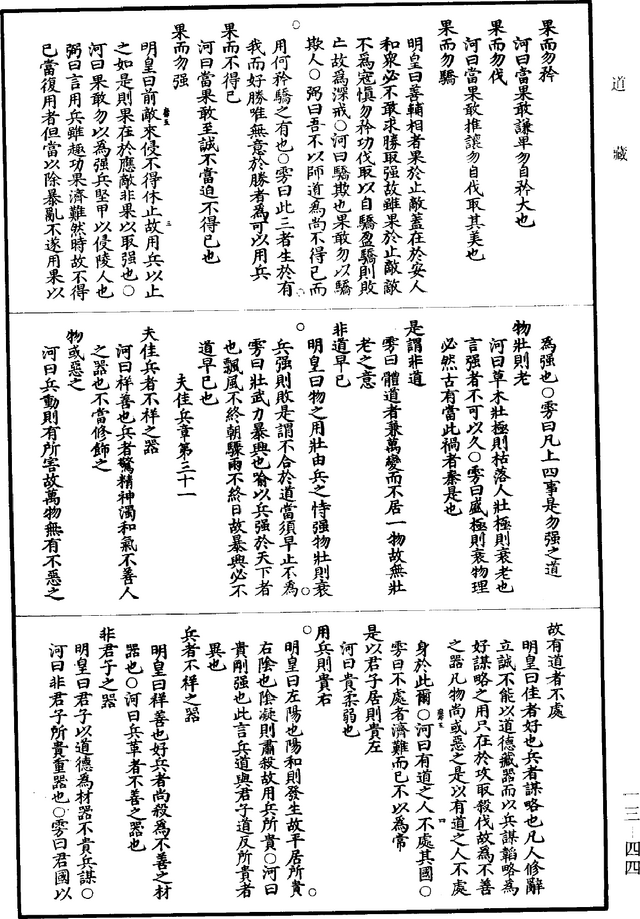 道藏
果而勿矜
河曰當果敢謙卑勿自矜大也
果而勿伐
河曰當果敢推讓勿自伐取其美也
果而勿驕
明皇曰善輔相者果於止敵蓋在於安人
和衆必不敢求勝取强故雖果於止敵敵
不爲寇慎勿矜功伐取以自驕盈驕則敗
亡故爲深戒○河曰驕欺也果敢勿以驕
欺人○弼曰吾不以師道爲尚不得已而
用何矜驕之有也○雱曰此三者生於有
我而好勝唯無意於勝者爲可以用兵
果而不得已
河曰當果敢至誠不當迫不得已也
果而勿强
明皇曰前敵來侵不得休止故用兵以止
之如是則果在於應敵非果以取强也○
河曰果敢勿以爲强兵堅甲以侵陵人也
弼曰言用兵雖趣功果濟難然時故不得
已當復用者但當以除暴亂不遂用果以
爲强也○雱曰凡上四事是勿强之道
物壯則老
河曰草木壯極則枯落人壯極則衰老也
言强者不可以久○雱曰盛極則衰物理
必然古有當此禍者秦是也
是謂非道
雱曰體道者兼萬變而不居一物故無壯
老之意
非道早已
明皇曰物之用壯由兵之恃强物壯則衰
兵强則敗是謂不合於道當須早止不爲○
雱曰壯武力暴興也喻以兵强於天下者
也飄風不終朝驟雨不終日故暴興必不
道早已也
夫佳兵章第三十一
夫佳兵者不祥之器
河曰祥善也兵者驚精神濁和氣不善人
之器也不當修飾之
物或惡之
河曰兵動則有所害故萬物無有不惡之
故有道者不處
明皇曰佳者好也兵者謀略也凡人修辭
立誠不能以道德藏器而以兵謀韜略爲
好謀略之用只在於攻取殺伐故爲不善
之器凡物尚或惡之是以有道之人不處
身於此爾○河曰有道之人不處其國○
雱曰不處者濟難而已不以爲常
是以君子居則貴左
河曰貴柔弱也
用兵則貴右
明皇曰左陽也陽和則發生故平居所貴○
右陰也陰凝則肅殺故用兵所貴○河曰
貴剛强也此言兵道與君子道反所貴者
異也
兵者不祥之器
明皇曰祥善也好兵者尚殺爲不善之材
器也○河曰兵革者不善之器也
非君子之器
明皇曰君子以道德爲材器不貴兵謀○
河曰非君子所貴重器也○雱曰君國以
一三—四四